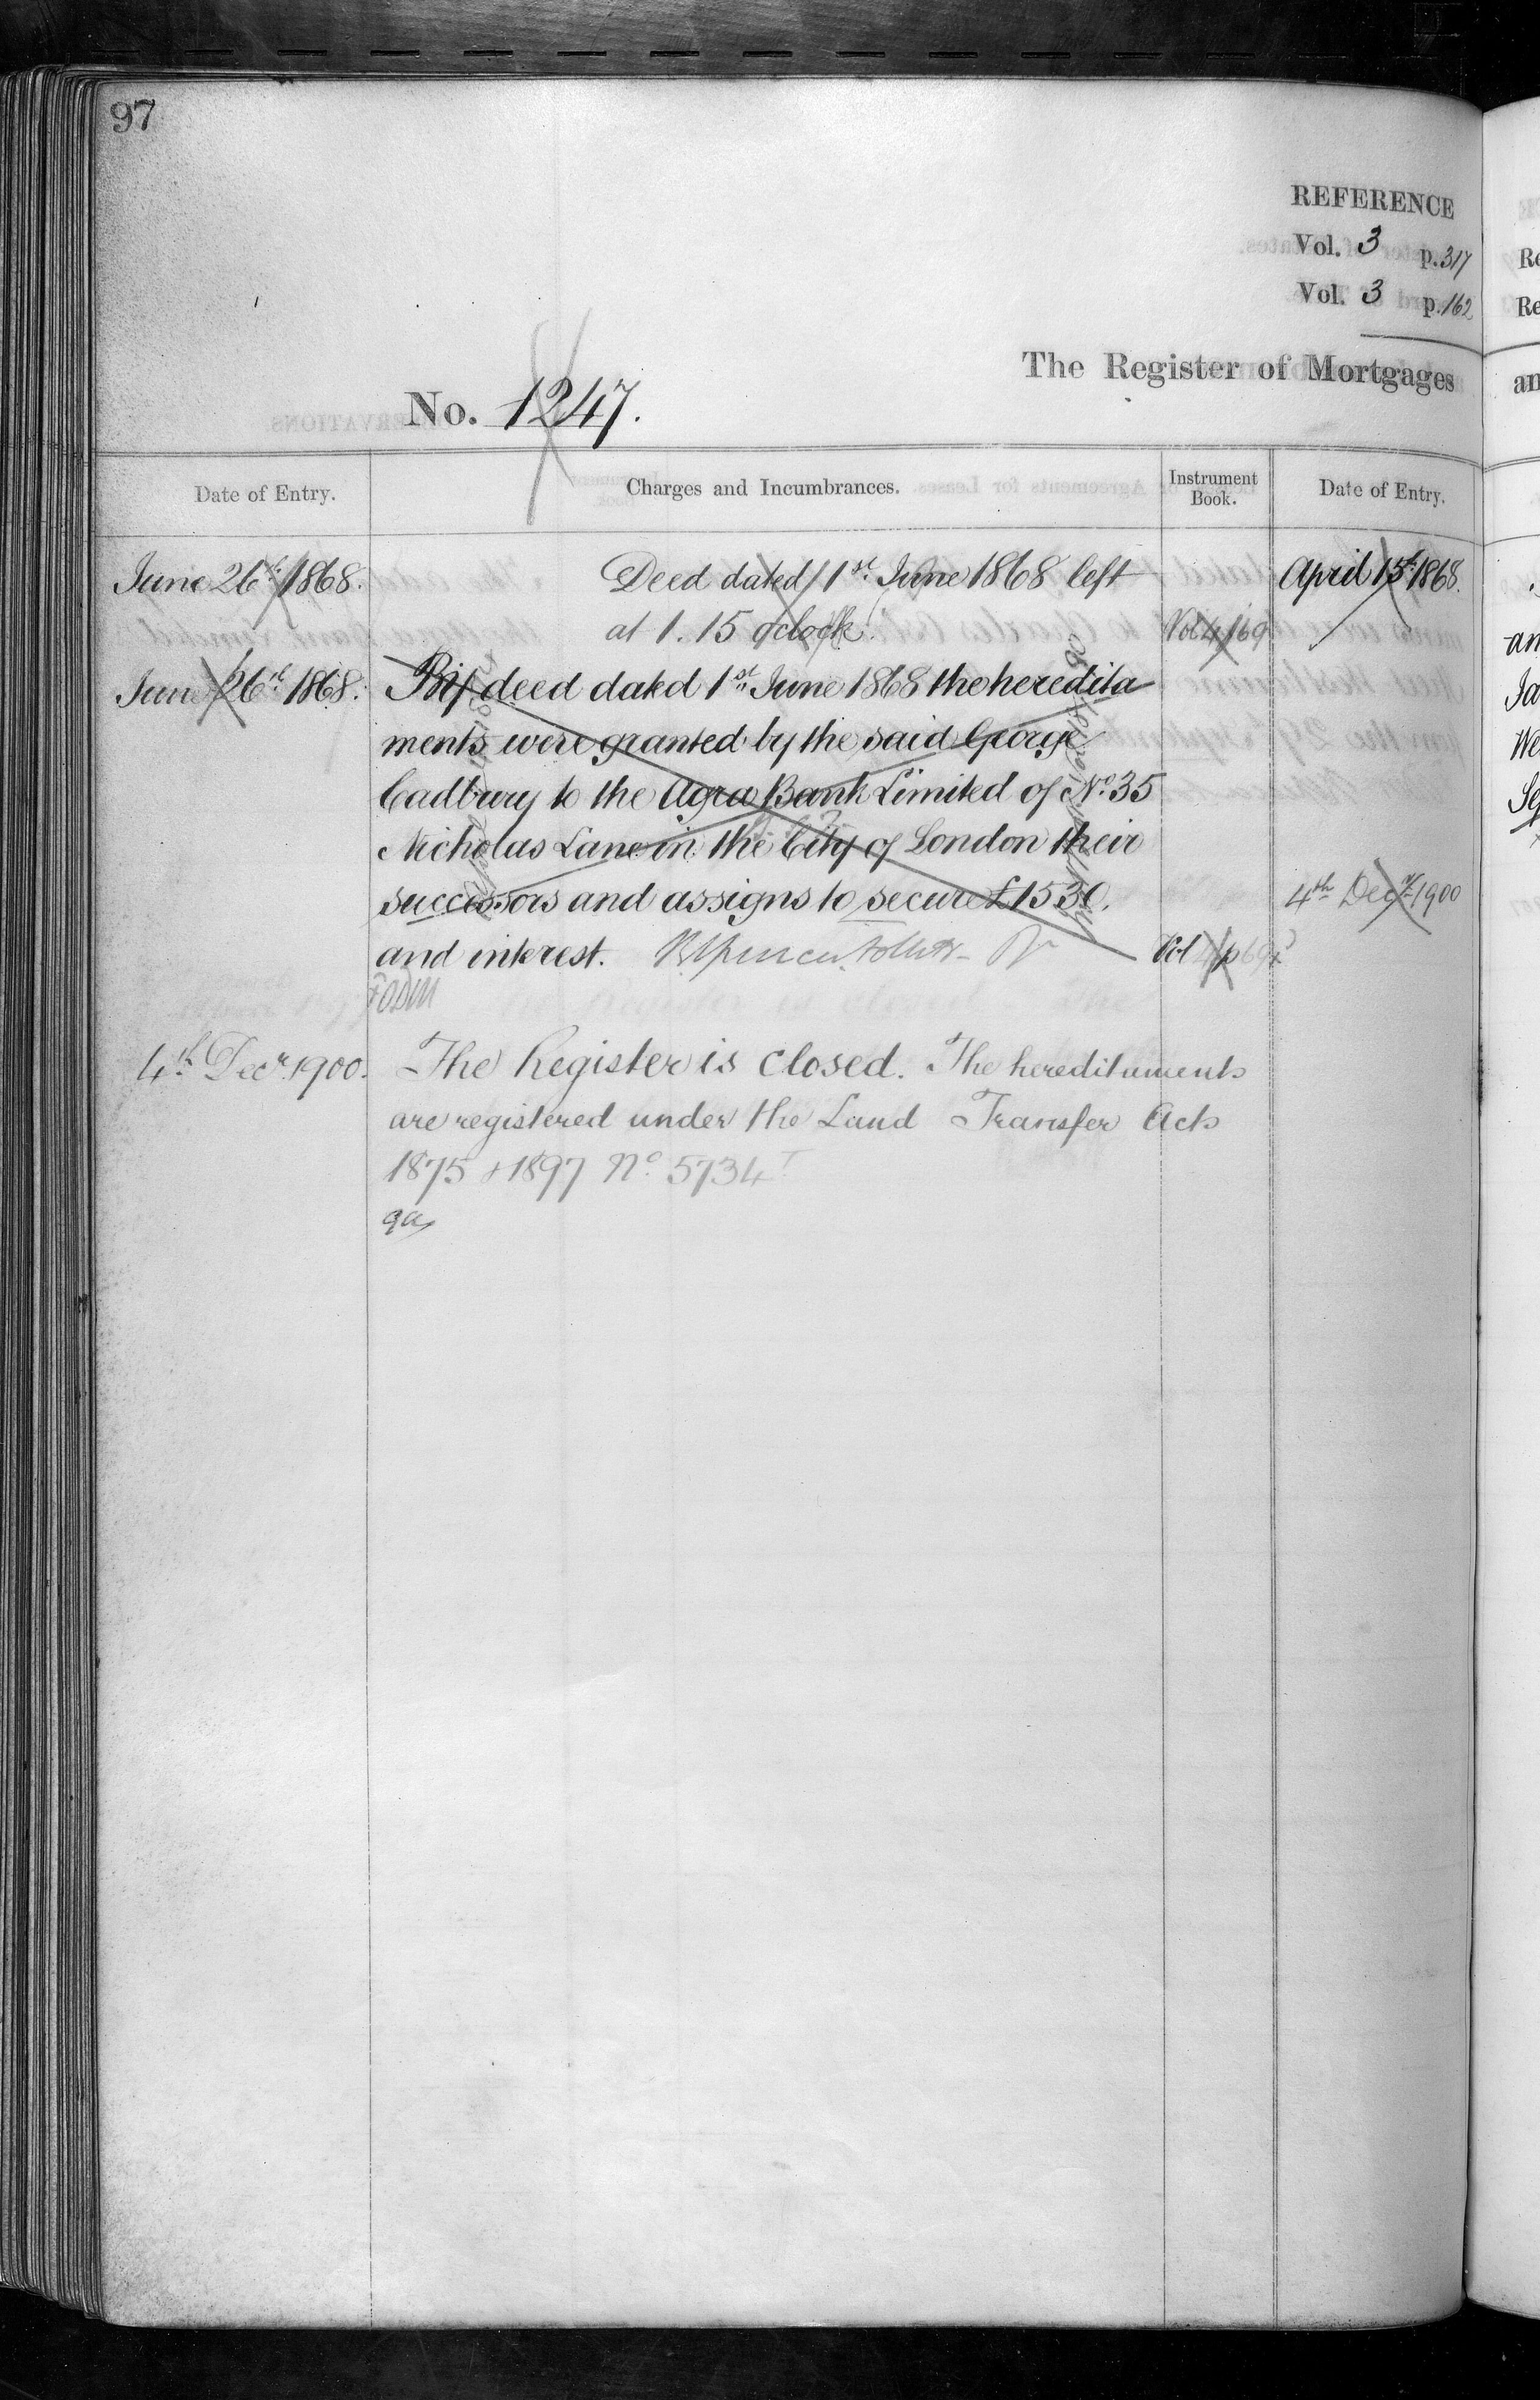 97
REFERENCE
Vol. 3 p. 317
Vol. 3 p. 162
The Register of Mortgages
No. 1247.
Date of Entry.
Charges and Incumbrances.
Instrument Book.
Date of Entry.
June 26th 1868.
Deed dated 1st June 1868 left
April 15th 1868.
at 1.15 o'clock.
Vol 4/169
June 26th 1868.
By deed dated 1st June 1868 the heredita
ments were granted by the said George
Cadbury to the Agra Bank Limited of No. 35
Nicholas Lane in the City of London their
successors and assigns to secure £1530.
4th Decr 1900
and interest.
Vol 4 p 69
4th Decr 1900.
The Register is closed. The hereditaments
are registered under the Land Transfer Acts
1875 & 1897 No. 5734